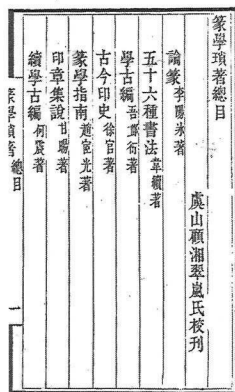 篆學瑣著總目
虞山顧湘翠嵐氏校刊
論篆李陽冰著
五十六種書法韋續著
學古編吾邱衍著
古今印史徐官著
篆學指南趙宧光著
印章集說甘暘著
續學古編何震著
篆學瑣著 總目 一